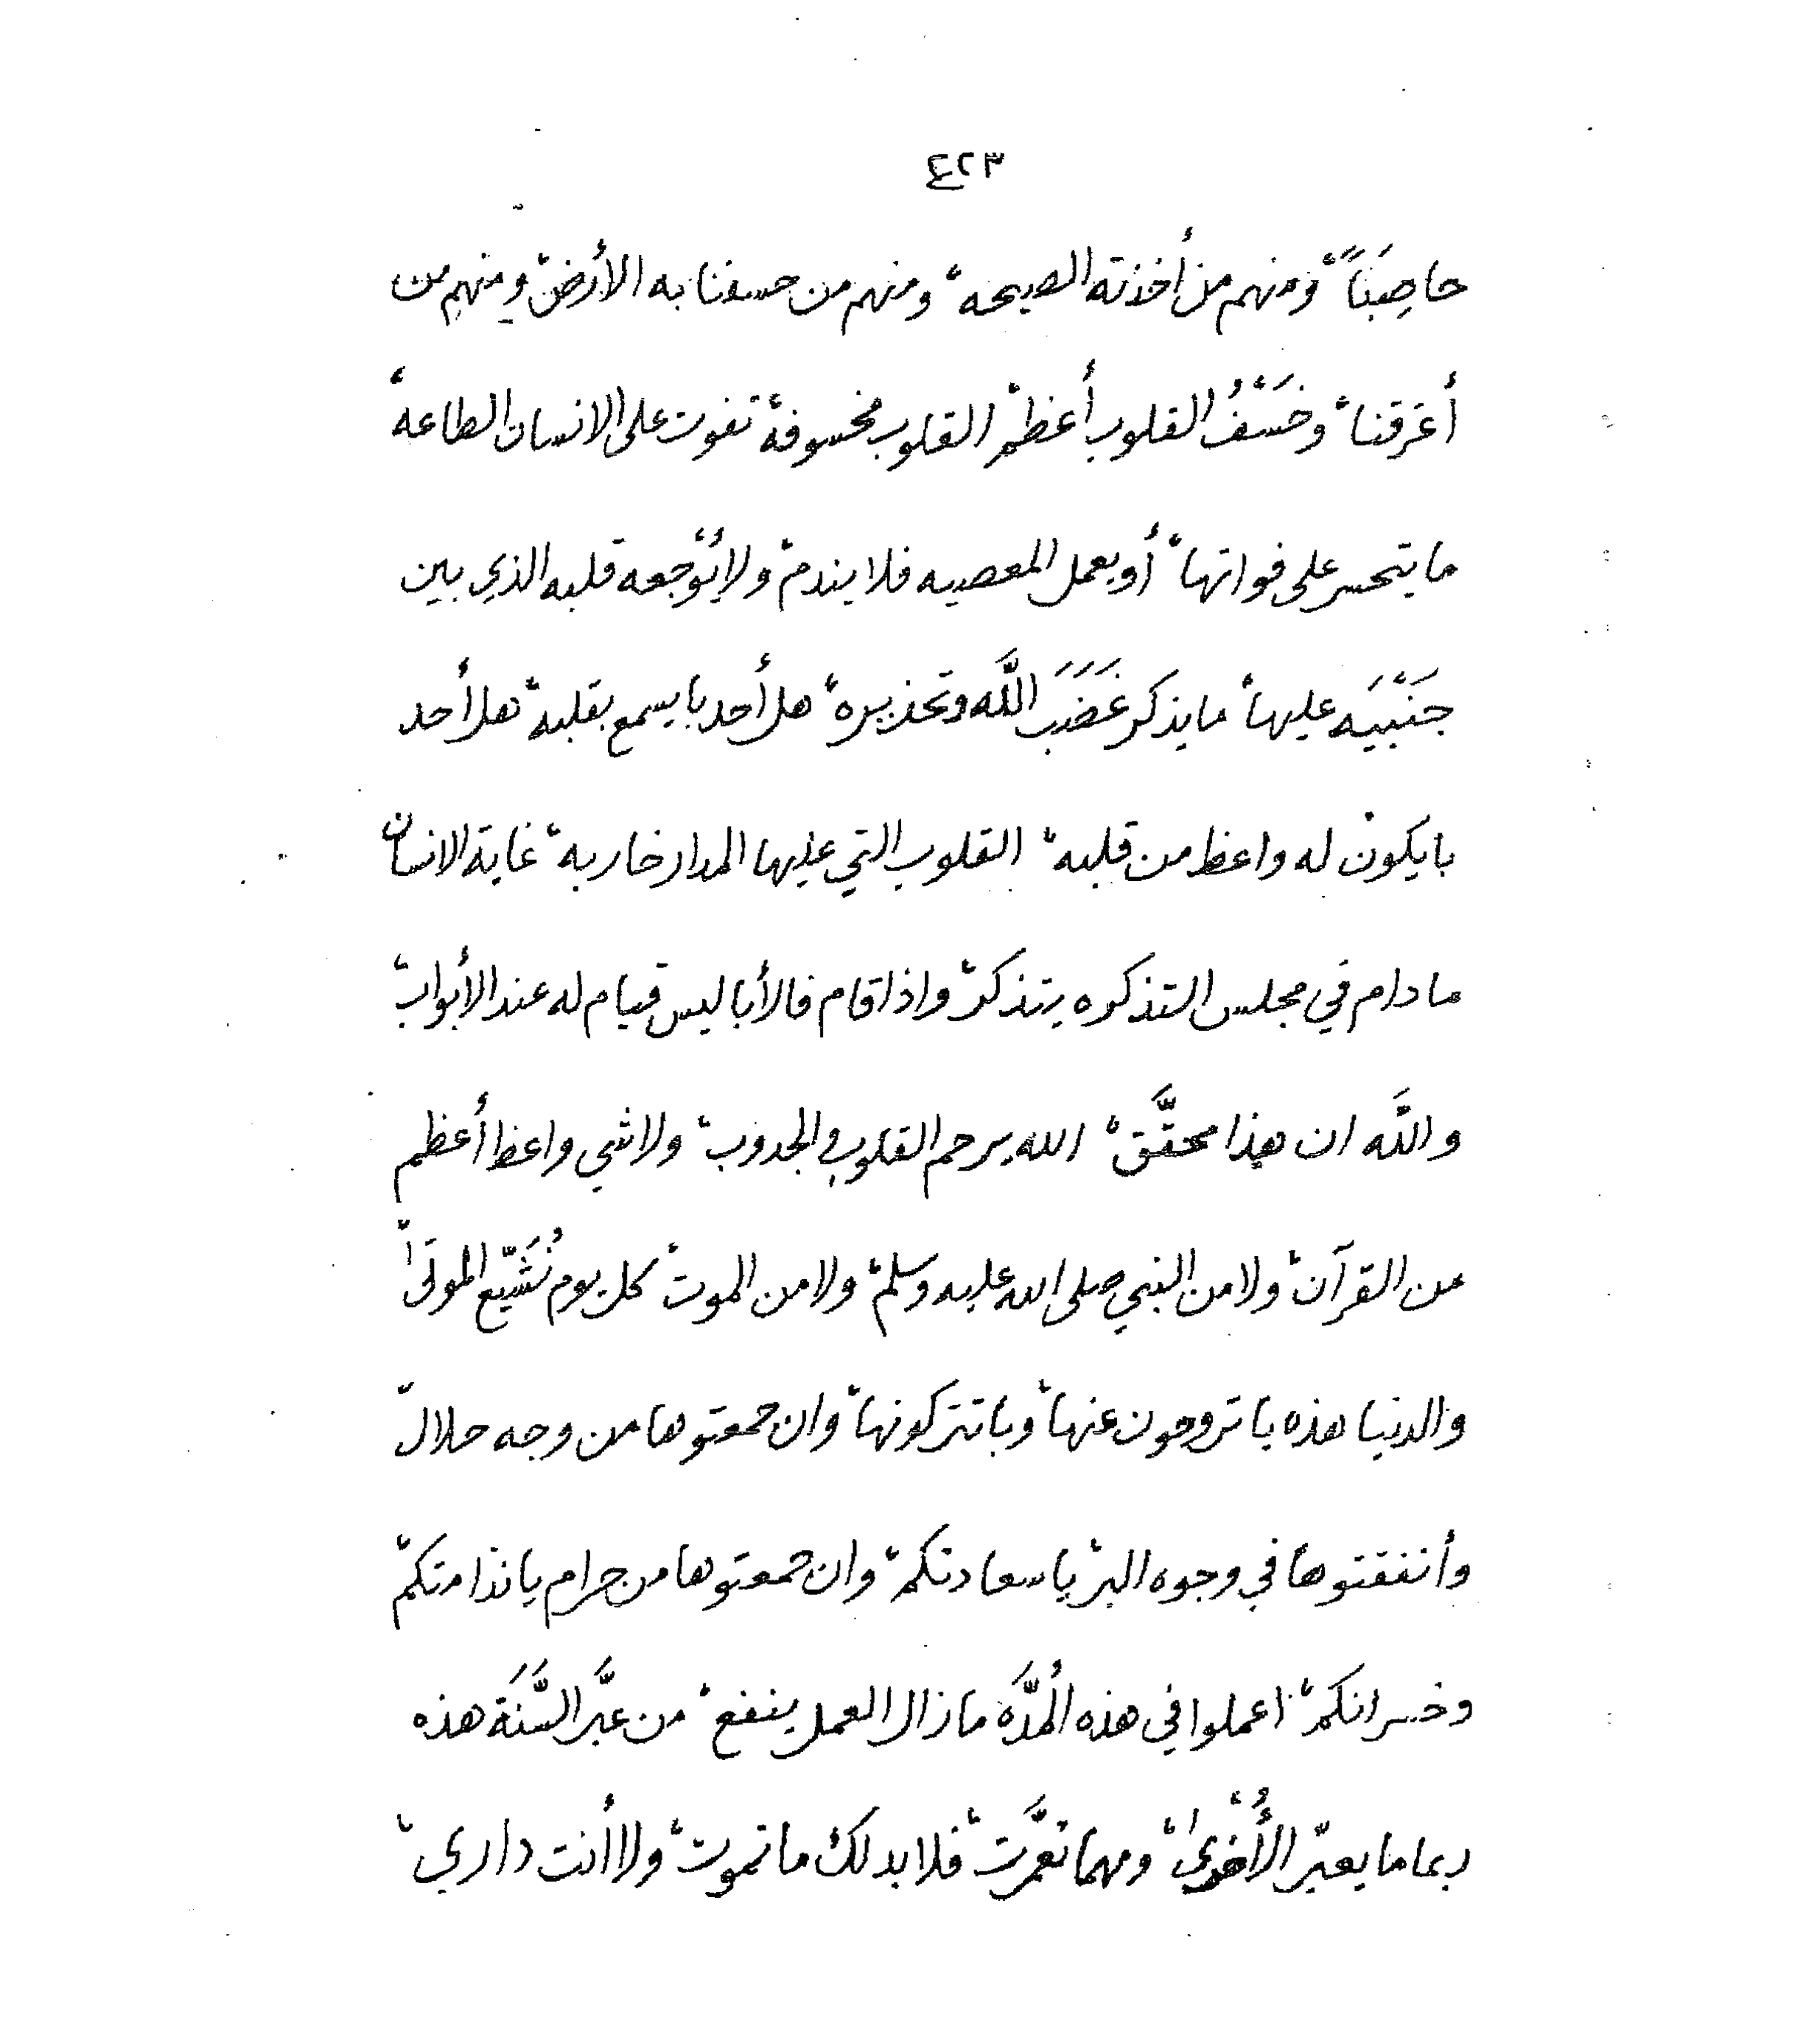 ٤٢٣
حاصِبَاً، ومنهم من أخذته الصيحه، ومنهم من خسفنا به الأرض، ومنهم من
أغرقنا، وخَسْفُ القلوب أعظم، القلوب مخسوفة، تفوت على الانسان الطاعه،
ما يتحسر على فواتها، أو يعمل المعصيه فلا يندم، ولا يُوْجعه قلبه الذي بين
جَنْبَيَه عليها، ما يذكر غَضَبَ اللَّه وتحذيره، هل أحد با يسمع بقلبه، هل أحد
با يكون له واعظ من قلبه، القلوب التي عليها المدار خاربه، غاية الانسان
ما دام في مجلس التذكره يتذكر، واذا قام فالأباليس قيام له عند الأبواب،
واللَّه ان هذا محقَّق، الله يرحم القلوب والجدوب، ولا شي واعظ أعظم
من القرآن، ولا من النبي صلى الله عليه وسلم، ولا من الموت، كل يوم نُشَيّع الموتى،
والدنيا هذه با تروحون عنها، وبا تتركونها، وان جمعتوها من وجه حلال،
وأنفقتوها في وجوه البر، يا سعادتكم، وان جمعتوها من حرام يا ندامتكم،
وخسرانكم، اعملوا في هذه الُمدَّه ما زال العمل ينفع، من عبَّر السَّنَة هذه
ربما ما يعبّر الأُخْرىٰ، ومهما تعمَّرت، فلا بد لك ما تموت، ولا أنت داري،